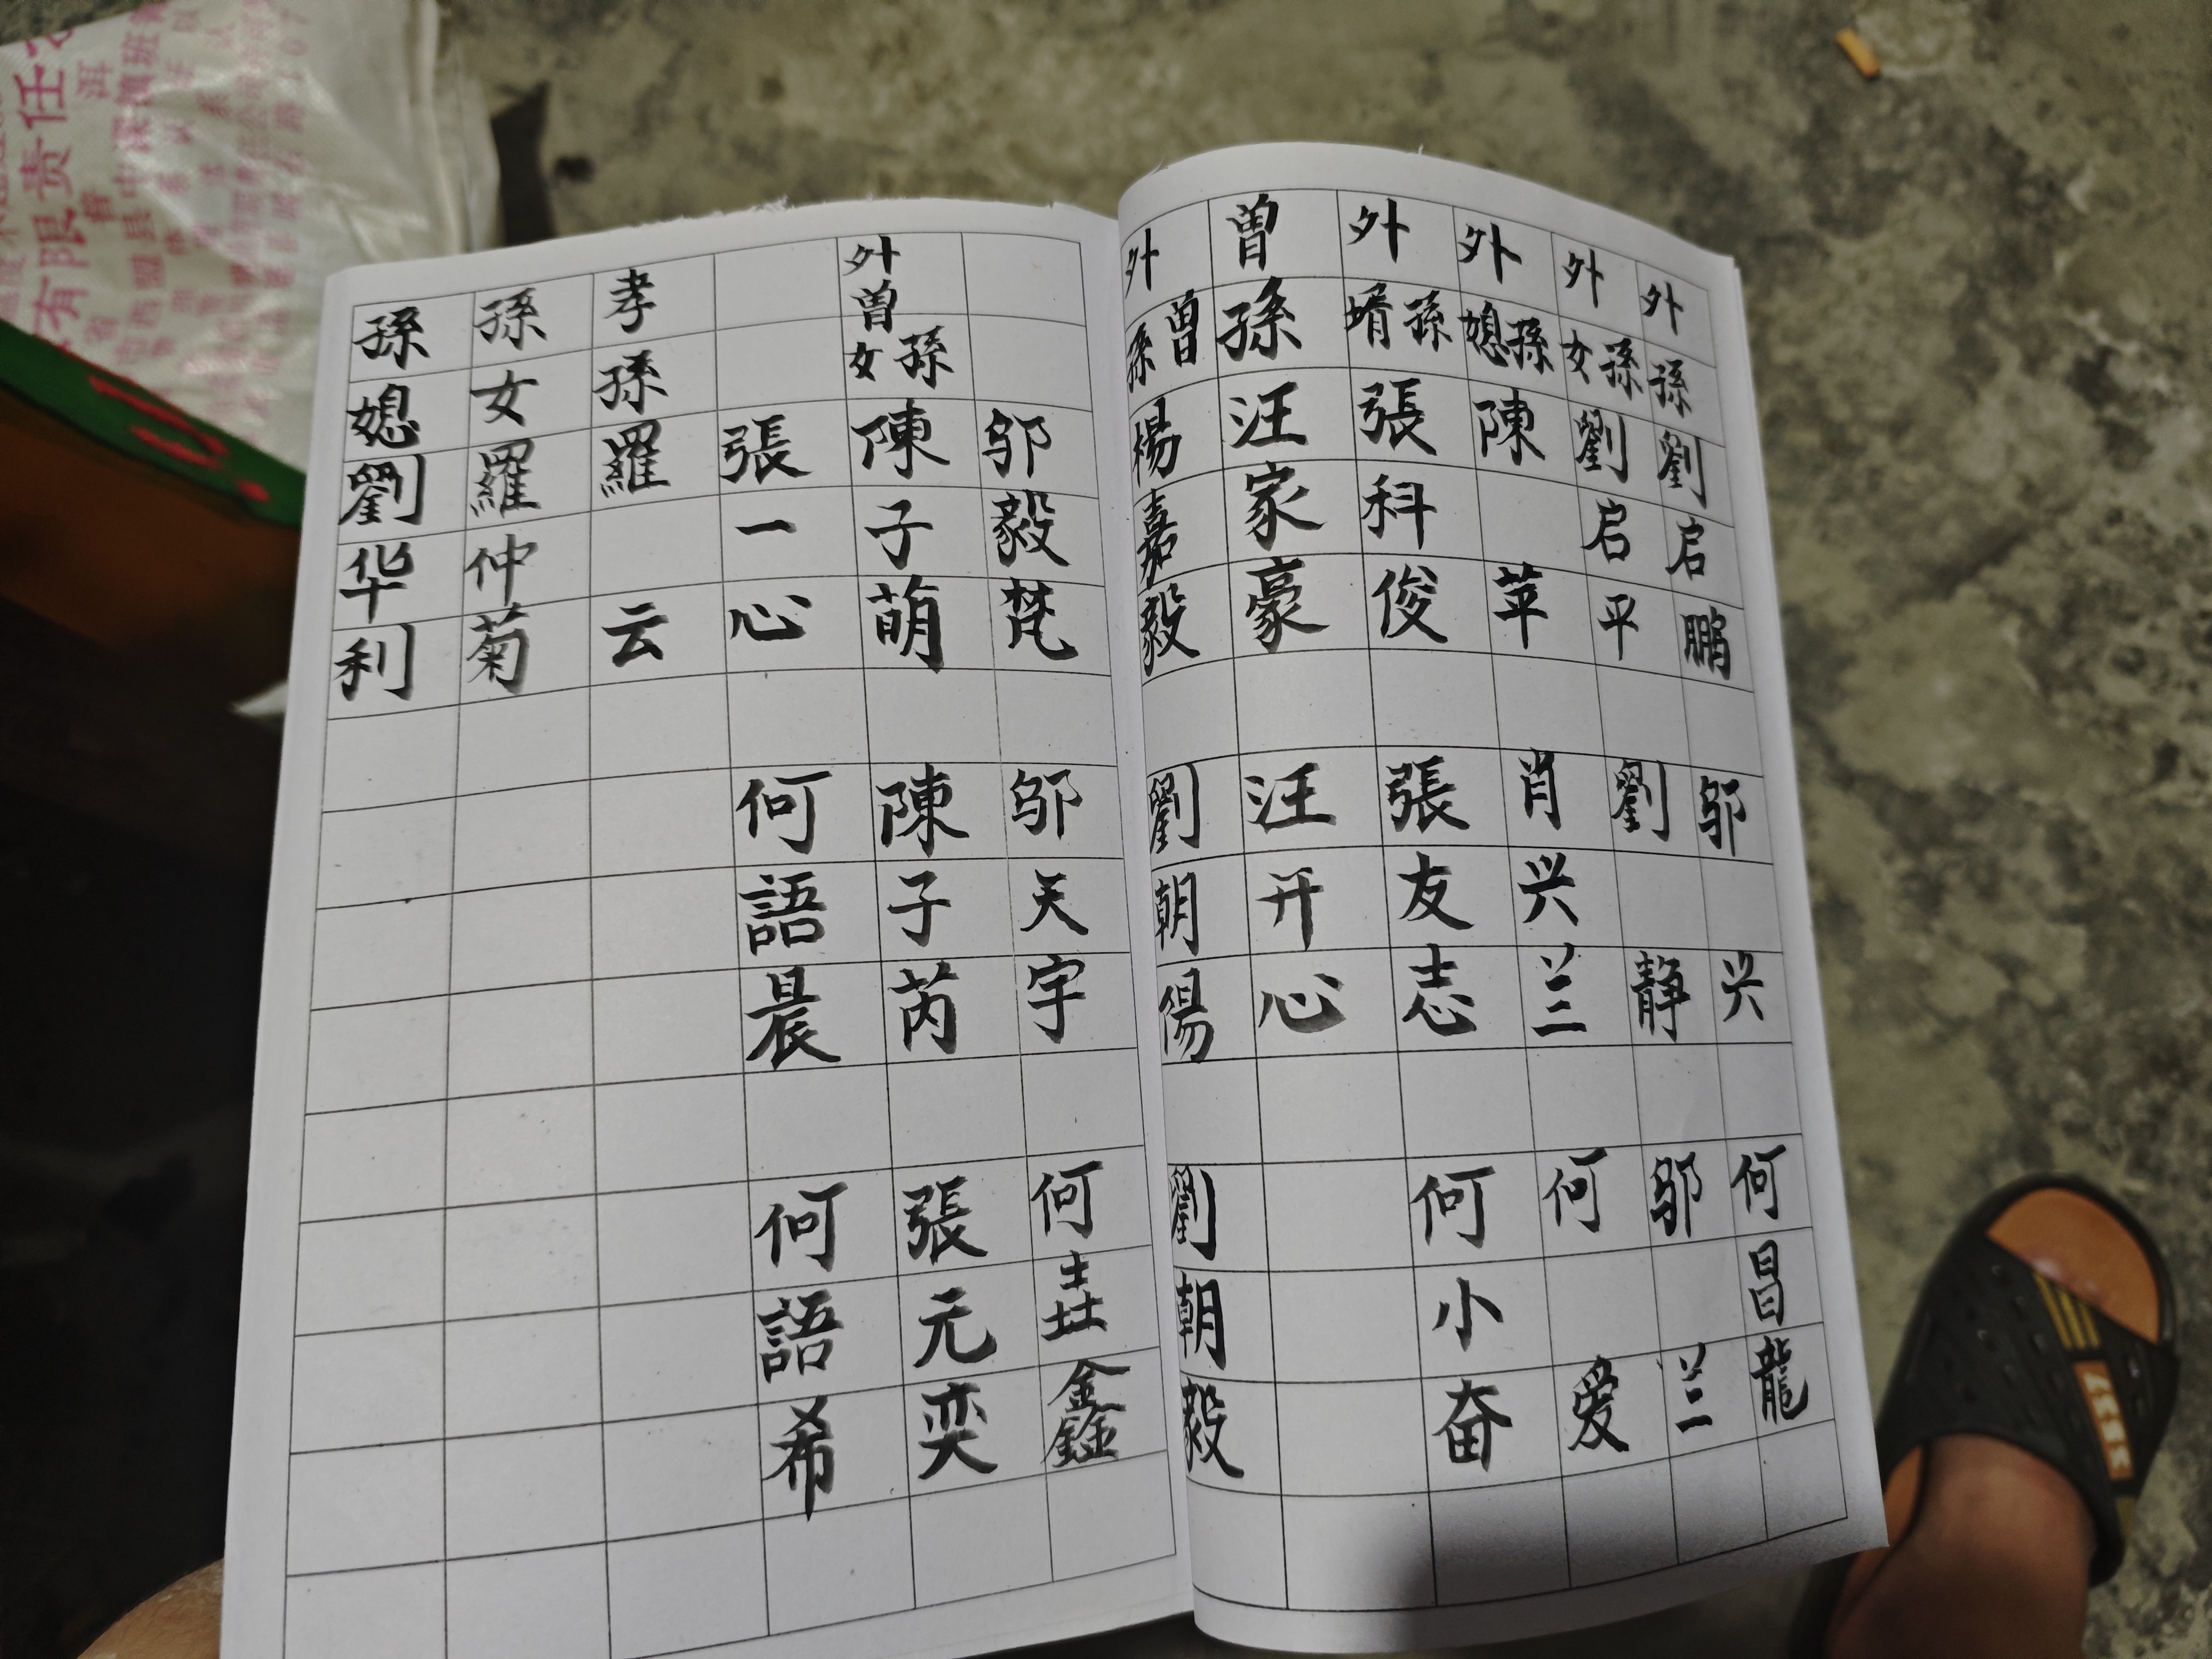 外孫劉启鹏 邬兴 何昌龍
外孫女劉启平 劉静 邬兰
外孫媳陳苹 肖兴兰 何爱
外孫婿張科俊 張友志 何小奋
曽孫汪家豪 汪开心
外曽孫楊嘉毅 劉朝陽 劉朝毅
邬毅梵 邬天宇 何壵鑫
外曽孫女陳子萌 陳子芮 張元奕
張一心 何語晨 何語希
孝孫羅云
孫女羅仲菊
孫媳劉华利
有限责任